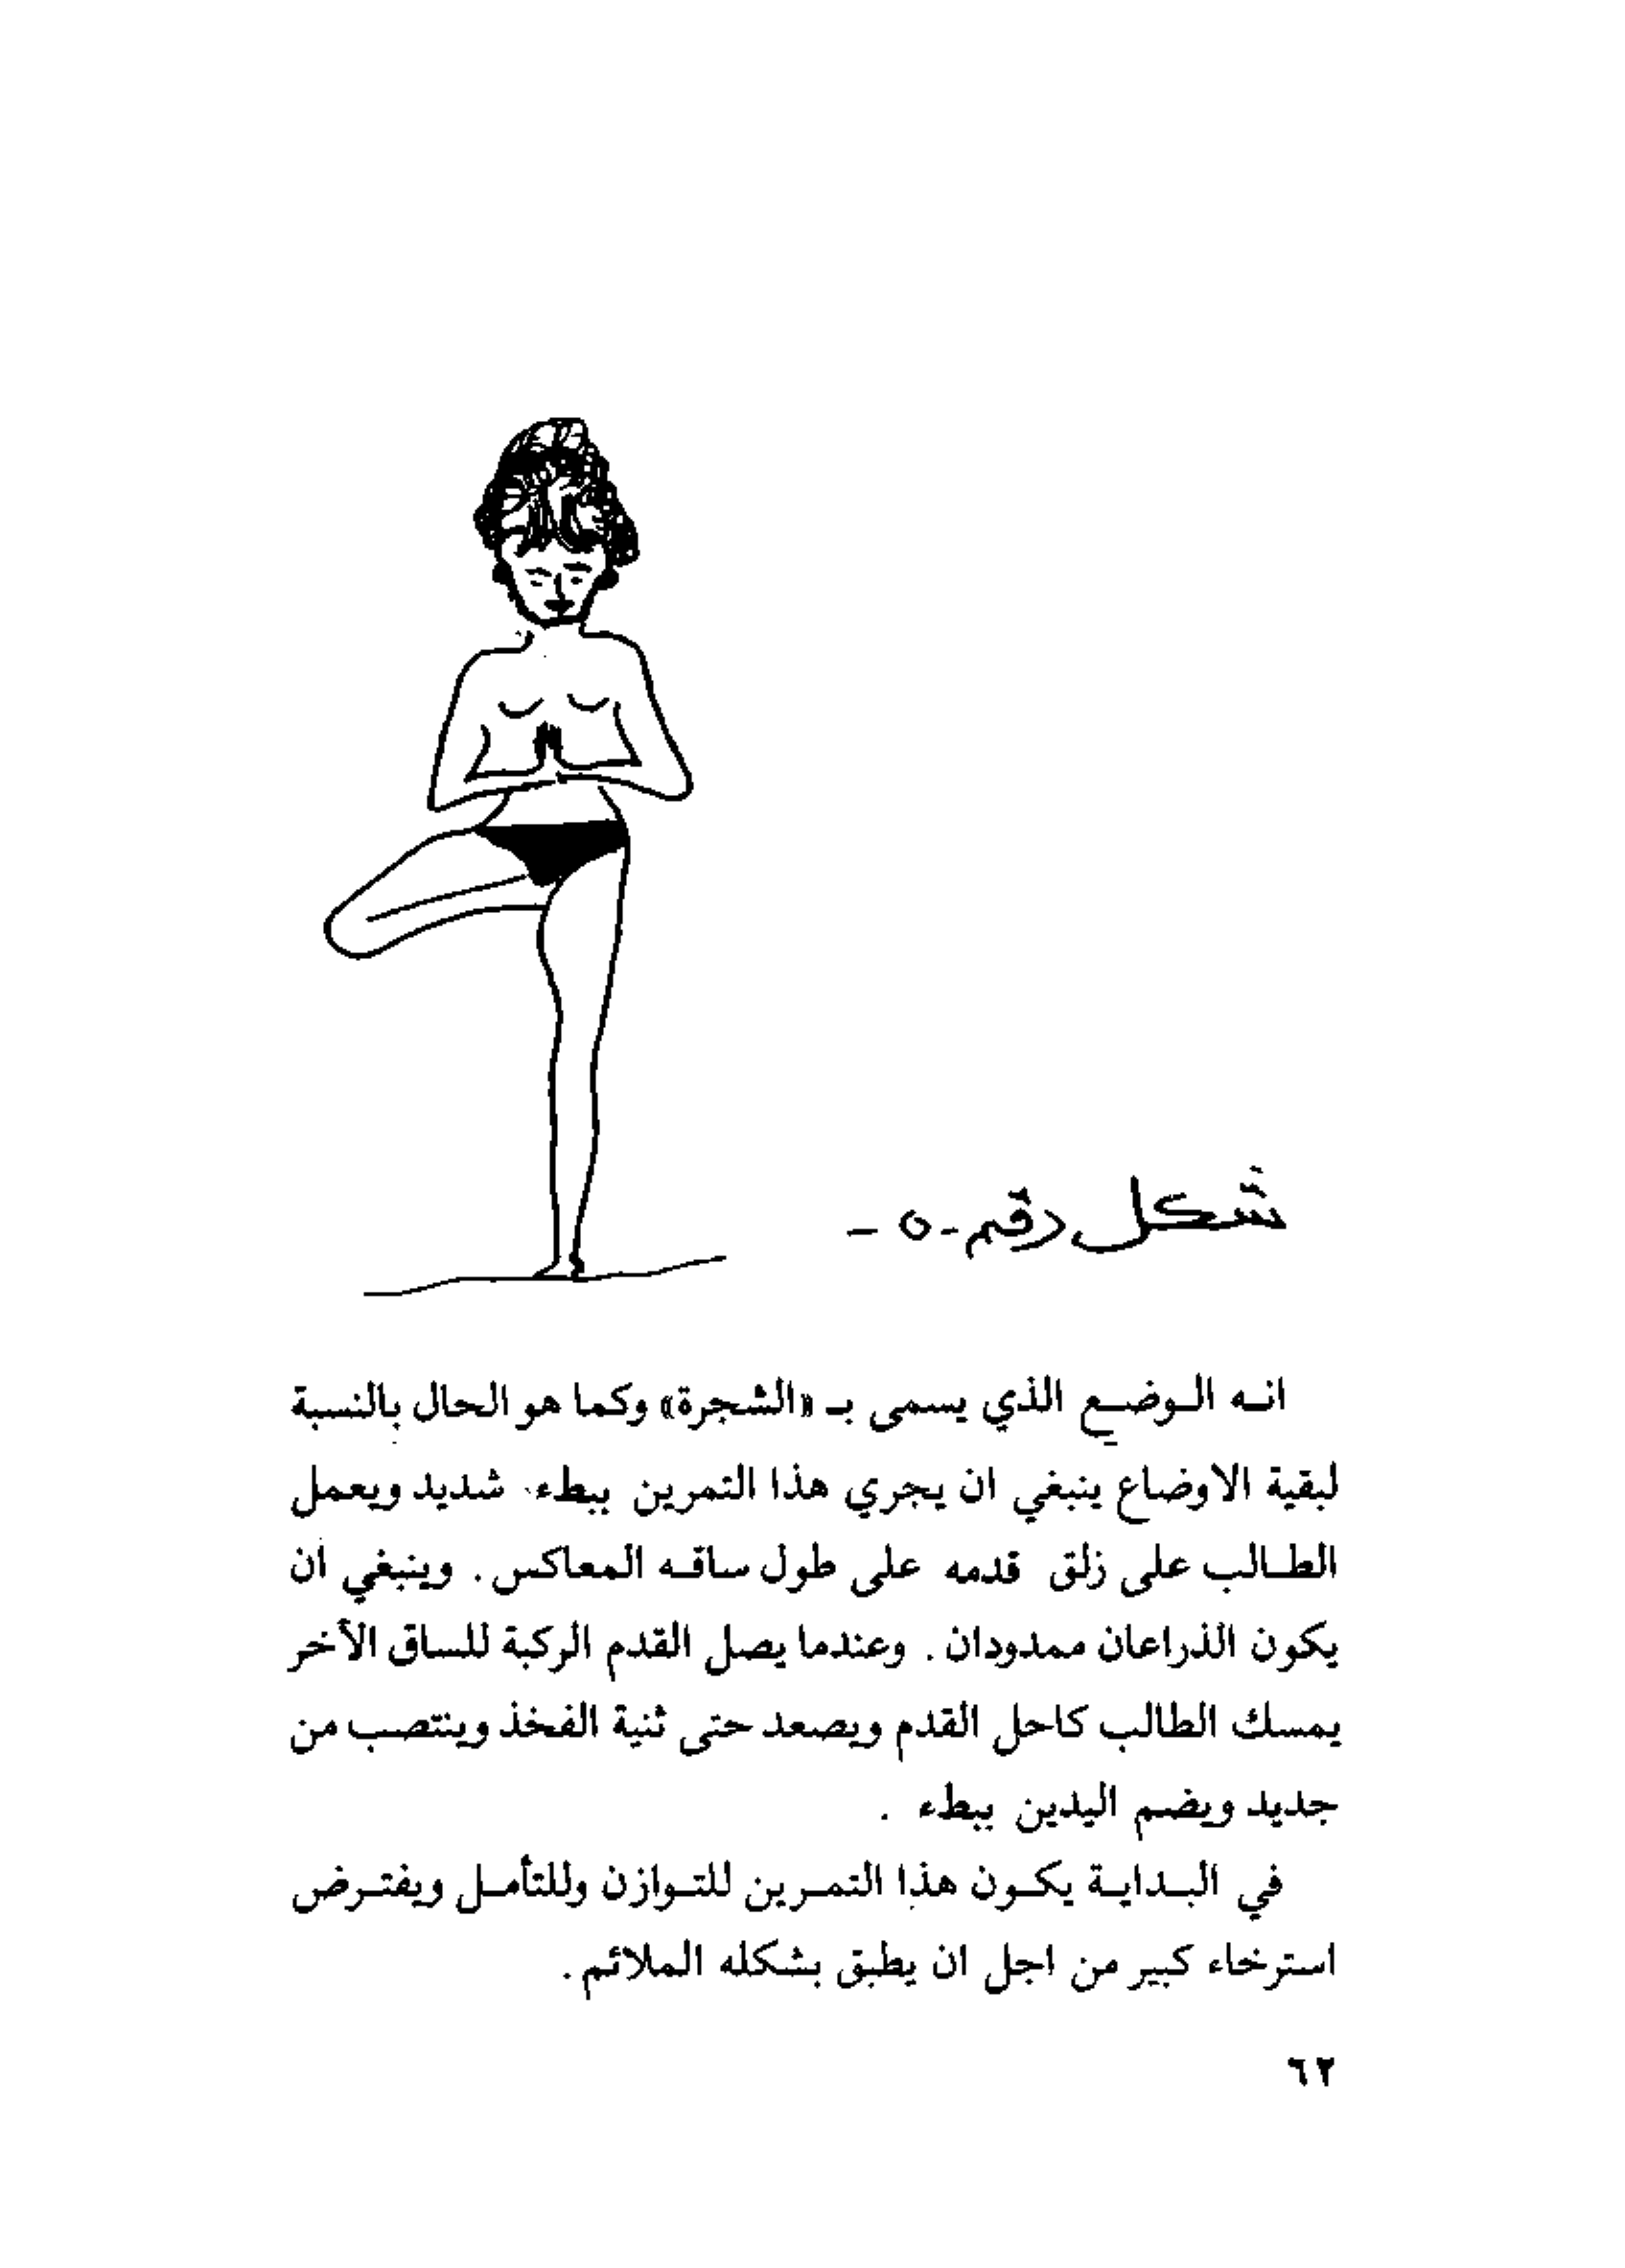 شكل رقم - ٥ -
انه الوضع الذي يسمى بـ «الشجرة» وكما هو الحال بالنسبة
لبقية الاوضاع ينبغي ان يجري هذا التمرين ببطء شديد ويعمل
الطالب على زلق قدمه على طول ساقه المعاكس. وينبغي ان
يكون الذراعان ممدودان. وعندما يصل القدم الركبة للساق الأخر
يمسك الطالب كاحل القدم ويصعد حتى ثنية الفخذ وينتصب من
جديد ويضم اليدين ببطء .
في البداية يكون هذا التمرين للتوازن وللتأمل ويفترض
استرخاء كبير من اجل ان يطبق بشكله الملائم.
٦٢